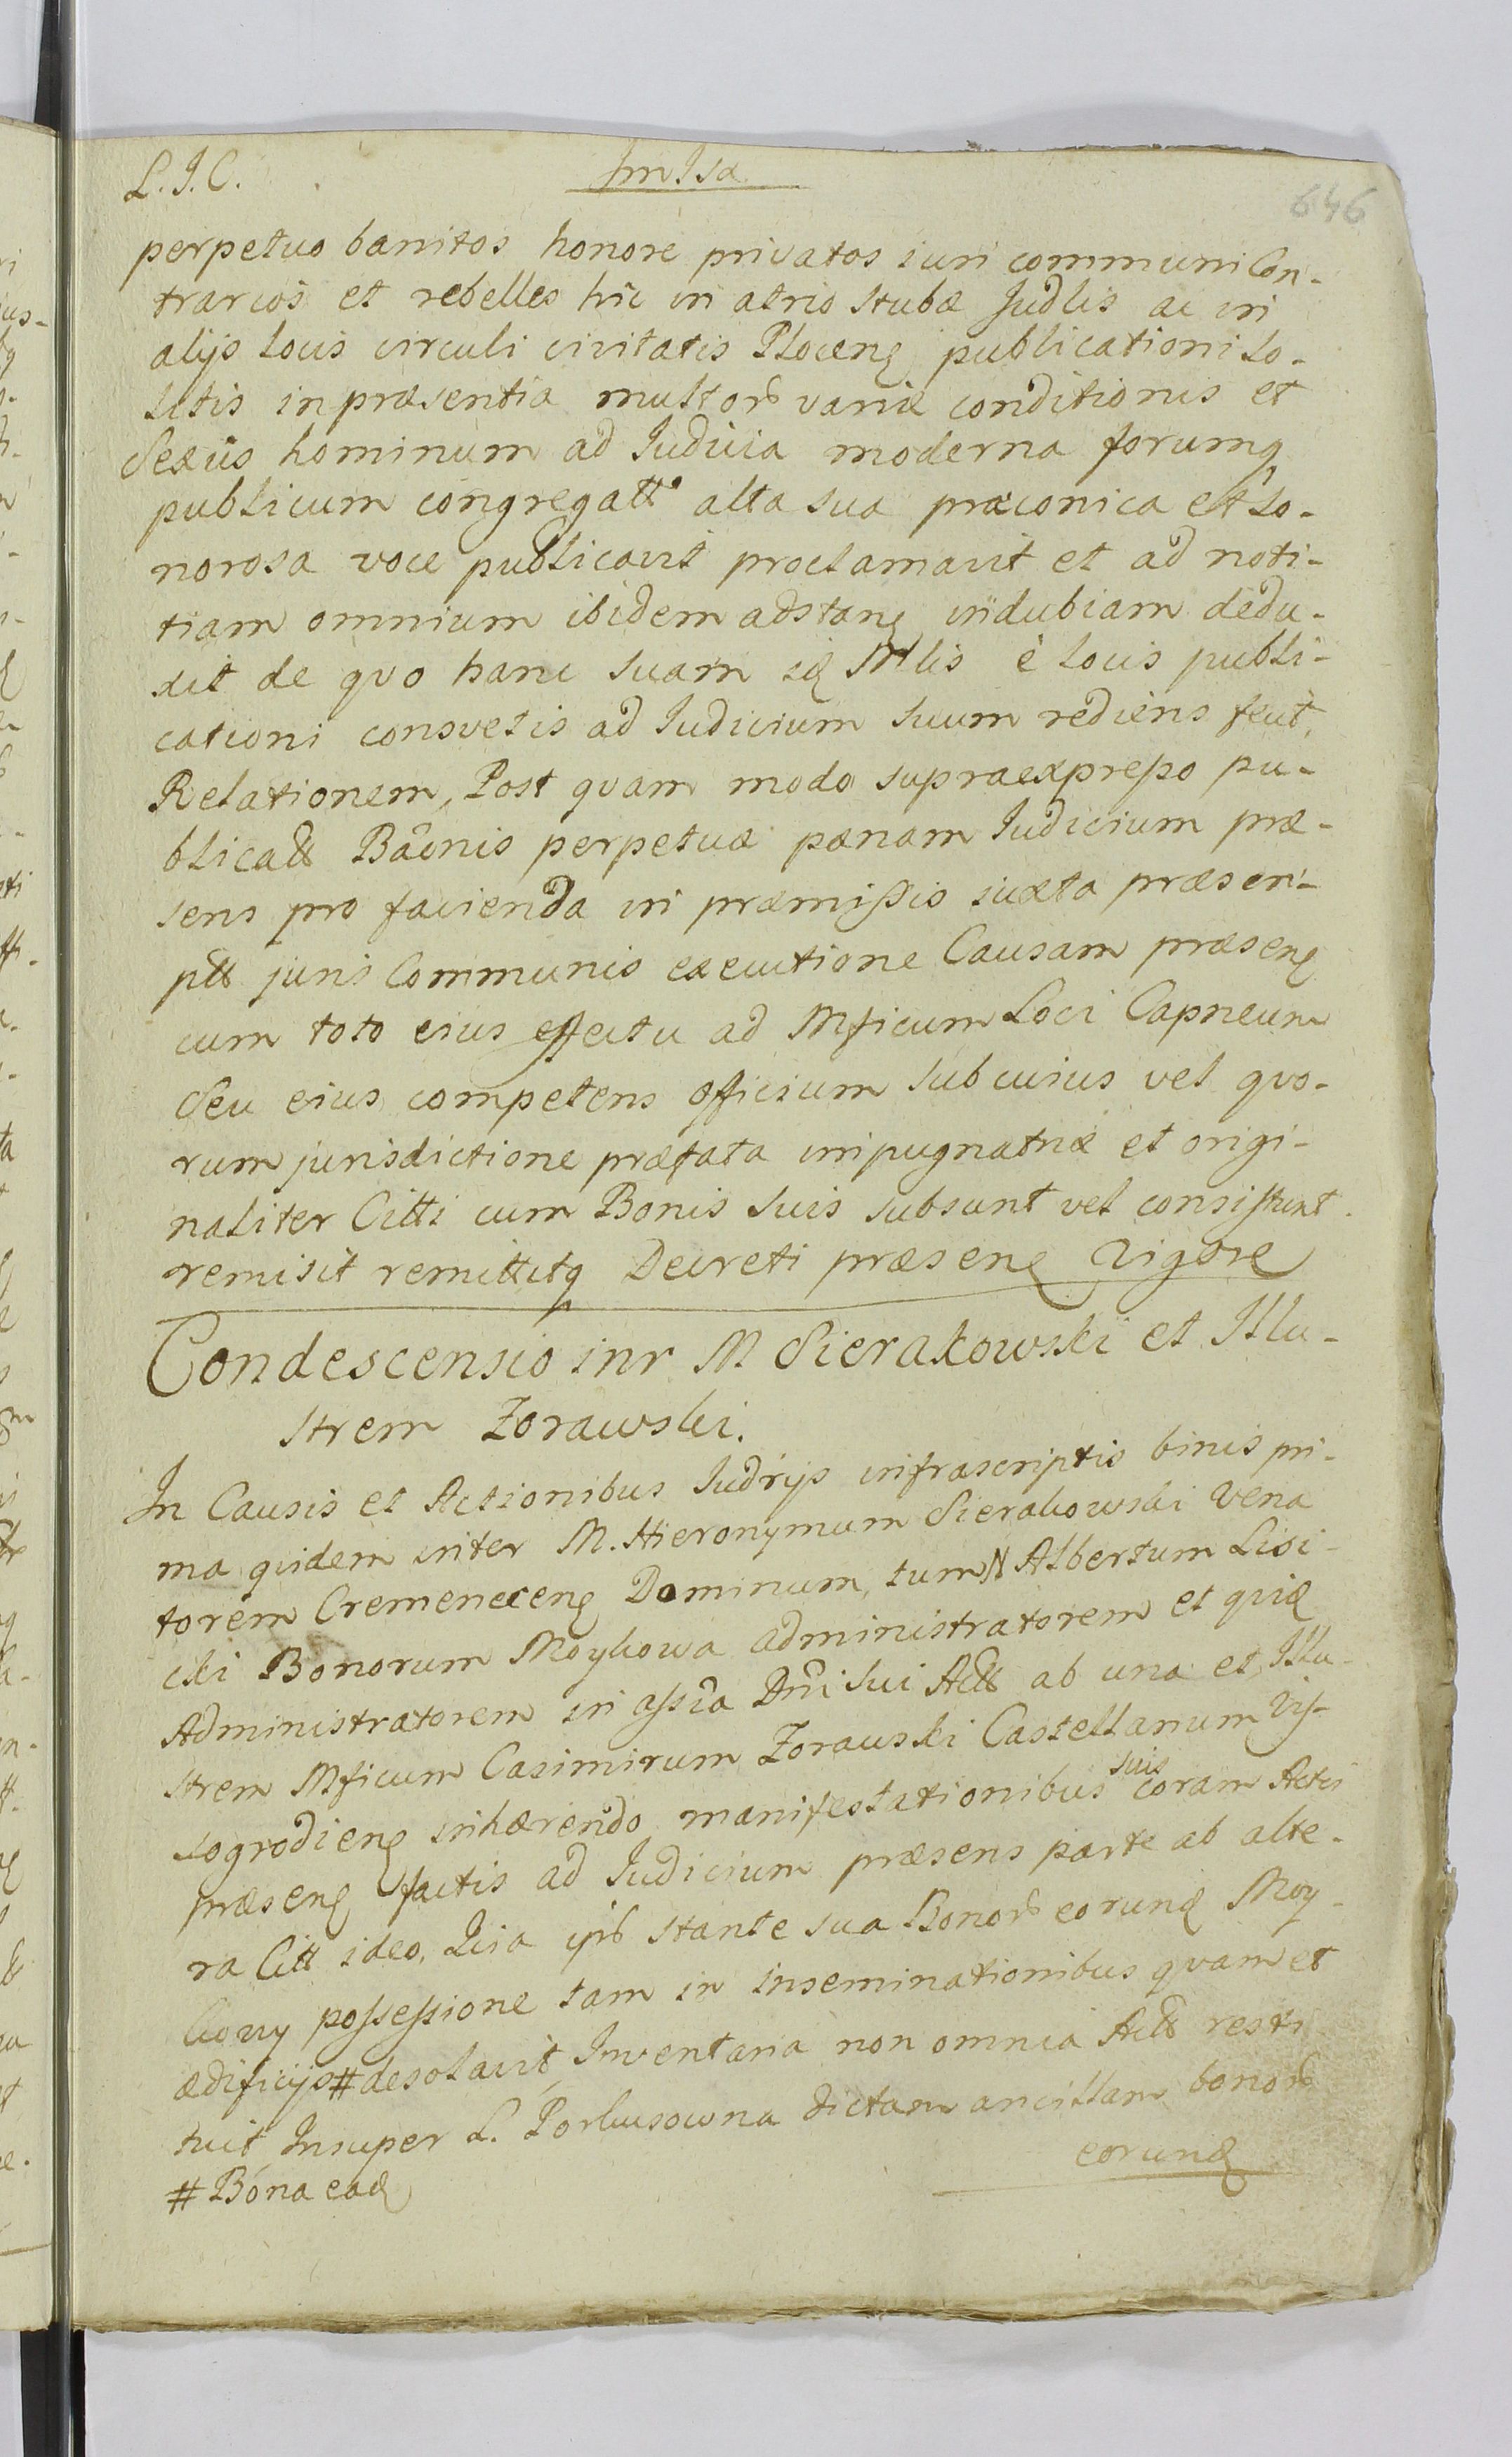 L. J. C. Im Isa 646
perpetuo banitos honore privatos iuri communi Con-
trarios et rebelles hic in atrio Stubæ Judlis ac in
alijs locis circuli civitatis Ploceng publicationi so-
litis in præsentia multorb variæ conditionis et
Sexûs hominum ad Iudicia moderna forumq
publicum congregatt alta sua præconica et so-
norosa voce publicavit proclamavit et ad noti-
tiam omnium ibidem adstang indubiam dedu-
xit de quo hanc suam id Mlis è locis publi-
cationi consvetis ad Iudicium suum rediens fecit,
Relationem, Post quam modo supraexpresso pu-
blicatt Bãonis perpetuæ pænam Iudicium præ-
sens pro facienda in præmissis iuxta præscri-
ptt juris Communis executione Causam præseng
cum toto eius effectu ad Mficum Loci Capneum
Seu eius competens officium sub cuius vel quo-
rum jurisdictione præfata impugnatriæ et origi-
naliter Citti cum Bonis suis subsunt vel consistunt.
remisit remittitq Decreti præseng vigore
Condescensio inr M Sierakowski et Illu-
strem Zorawski.
In Causis et Actionibus Iudrijs infrascriptis binis pri-
ma quidem inter M. Hieronymum Sierakowski Vena
torem Cremeneceng Dominum, tum N Albertum Lisi-
cki Bonorum Moykowa administratorem et quidē
Administratorem in assia Dni sui Actt ab una et Illu-
strem Mficum Casimirum Zorawski Castellanum Vis-
sogrodieng inhærendo manifestationibus suis coram Actis
præseng factis ad Iudicium præsens parte ab alte-
ra Citt ideo. Quia ipse stante sua Bonorb eorund Moy-
kowy possessione tam in inseminationibus quam et
ædificijs # desolavit, Inventaria non omnia Actt resti
tuit, Insuper L. Porkusowna dictam ancillam bonorb
# Bona ead eorund